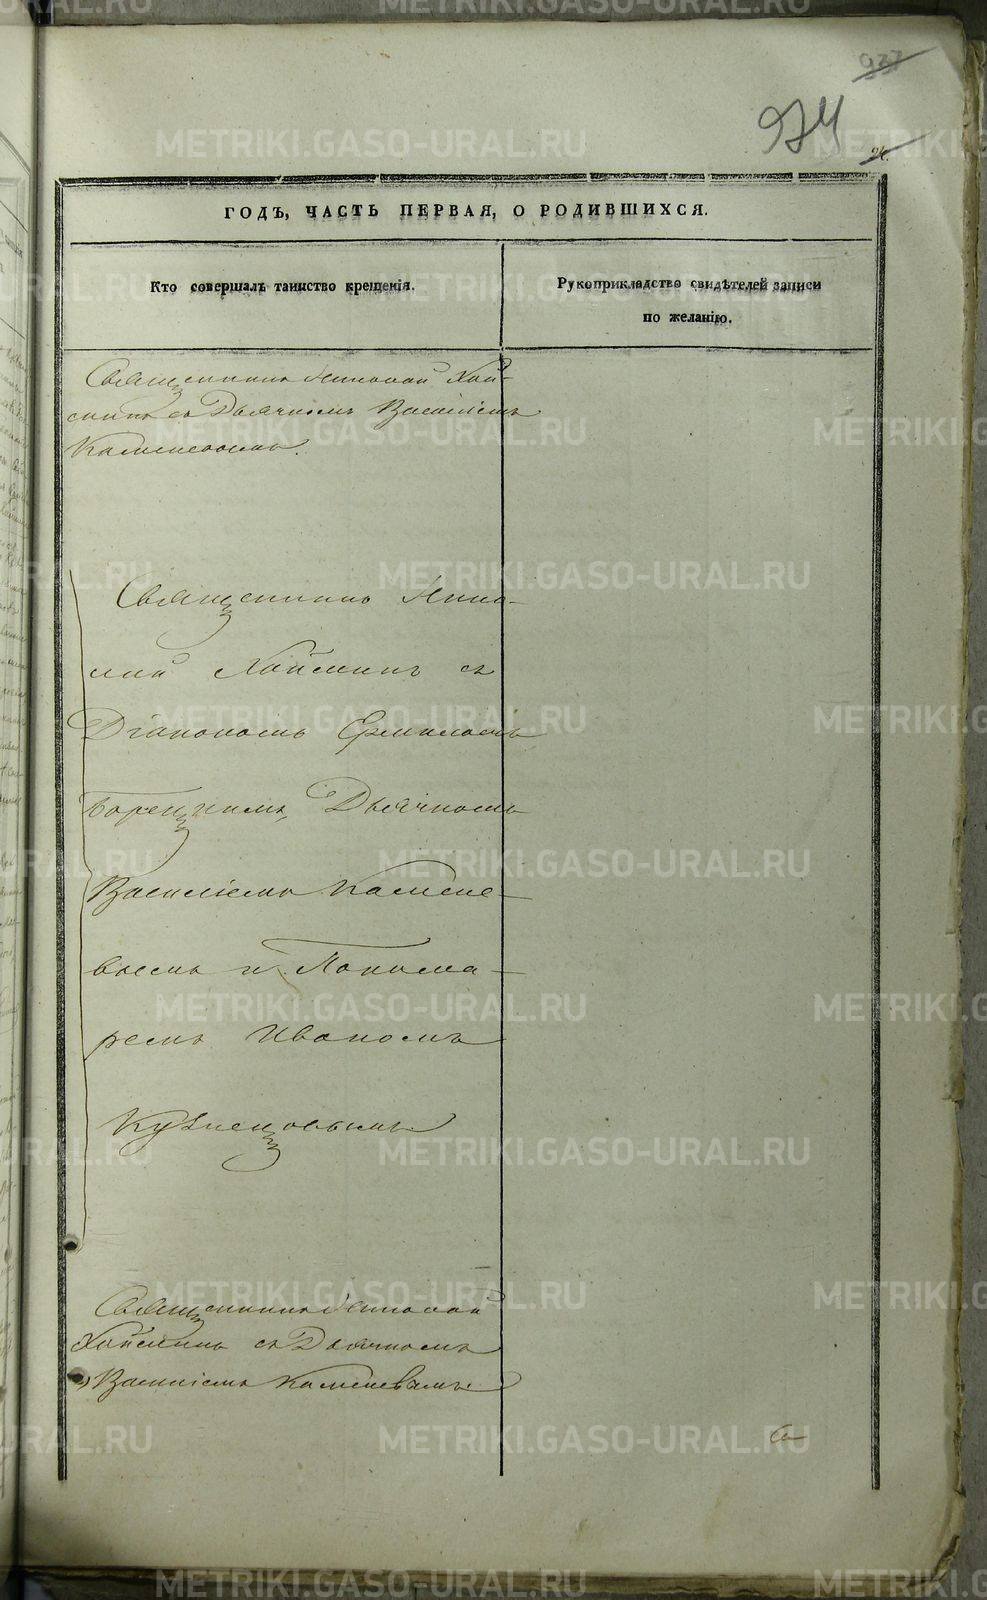 937
974
24.
ГОДЪ, ЧАСТЬ ПЕРВАЯ, О РОДИВШИХСЯ.
Кто совершалъ таинство крещенія.
Рукоприкладство свидѣтелей записи
по желанію.
Священникъ Николай Хой-
минъ съ Дьячкомъ Василіемъ
Каменевымъ.
Священникъ Нико-
лай Хойминъ съ
Діакономъ Ермиломъ
Дьячкомъ
Василіемъ Камене-
вымъ и Понома-
ремъ Иваномъ
Кузнецовымъ
Священникъ Николай
Хойминъ съ Дьячкомъ
Василіемъ Каменевымъ
METRIKI.GASO-URAL.RU